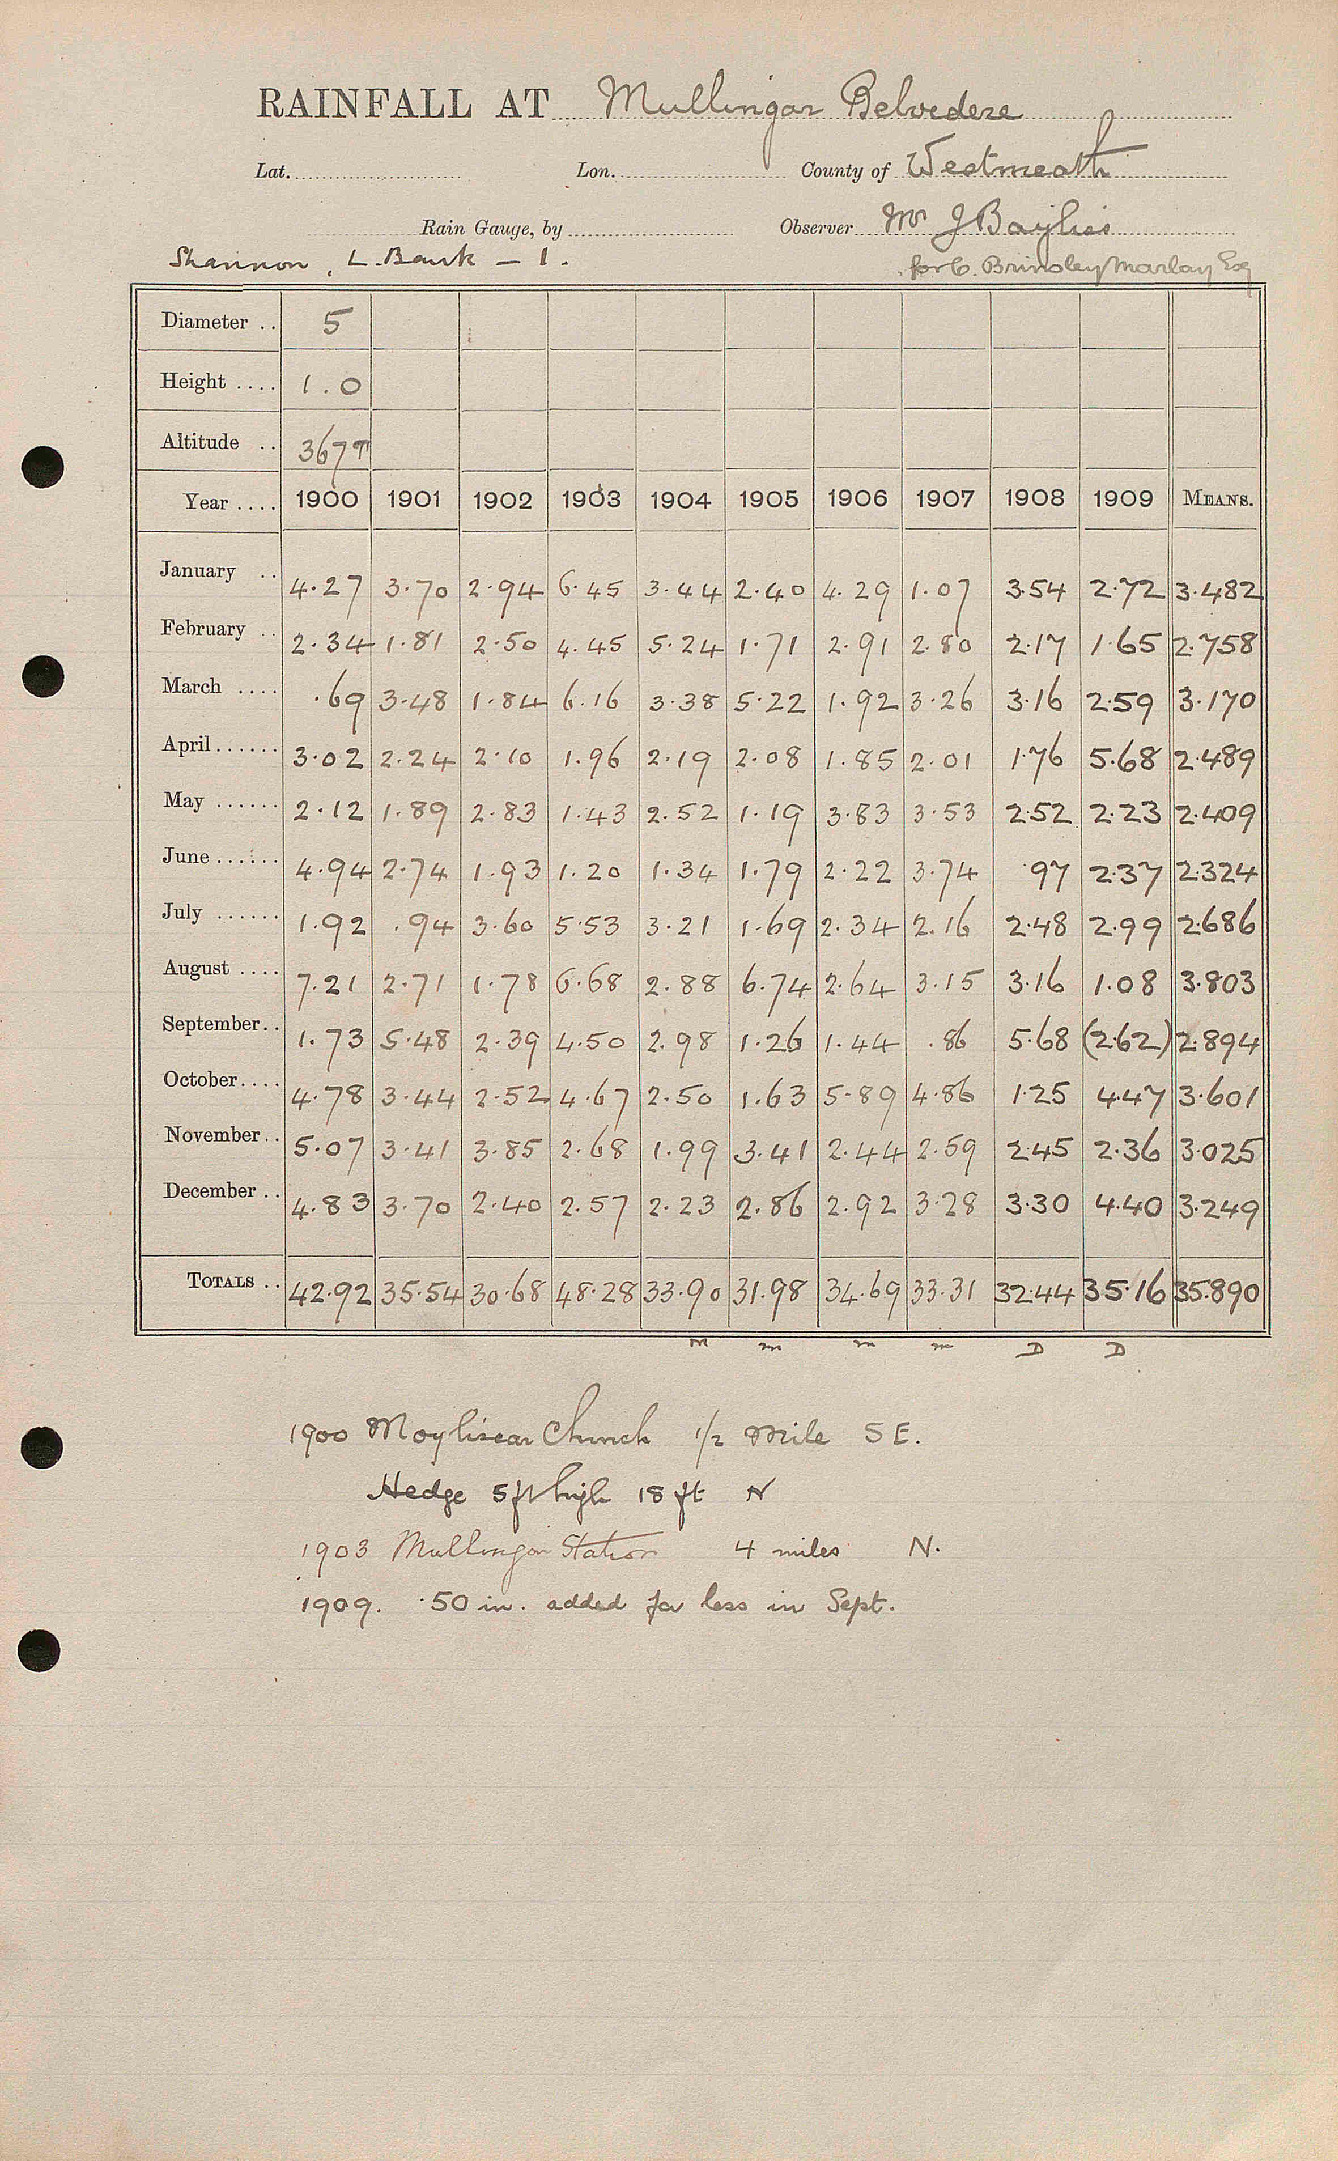 RAINFALL AT Mullingar Belvedere
Lat. Lon. County of Westmeath
Rain Gauge, by Observer Mr J Bayliss
Shannon, L. Bank - 1. for C. Brinsley Marlay Esq
Diameter .. 5
Height .... 1.0
Altitude .. 367T
Year .... 1900 1901 1902 1903 1904 1905 1906 1907 1908 1909 MEANS.
January .. 4.27 3.70 2.94 6.45 3.44 2.40 4.29 1.07 3.54 2.72 3.482
February .. 2.34 1.81 2.50 4.45 5.24 1.71 2.91 2.80 2.17 1.65 2.758
March .... .69 3.48 1.84 6.16 3.38 5.22 1.92 3.26 3.16 2.59 3.170
April ...... 3.02 2.24 2.10 1.96 2.19 2.08 1.85 2.01 1.76 5.68 2.489
May ...... 2.12 1.89 2.83 1.43 2.52 1.19 3.83 3.53 2.52 2.23 2.409
June ...... 4.94 2.74 1.93 1.20 1.34 1.79 2.22 3.74 .97 2.37 2.324
July ...... 1.92 .94 3.60 5.53 3.21 1.69 2.34 2.16 2.48 2.99 2.686
August .... 7.21 2.71 1.78 6.68 2.88 6.74 2.64 3.15 3.16 1.08 3.803
September .. 1.73 5.48 2.39 4.50 2.98 1.26 1.44 .86 5.68 (2.62) 2.894
October .... 4.78 3.44 2.52 4.67 2.50 1.63 5.89 4.86 1.25 4.47 3.601
November .. 5.07 3.41 3.85 2.68 1.99 3.41 2.44 2.59 2.45 2.36 3.025
December .. 4.83 3.70 2.40 2.57 2.23 2.86 2.92 3.28 3.30 4.40 3.249
TOTALS .. 42.92 35.54 30.68 48.28 33.90 31.98 34.69 33.31 32.44 35.16 35.890
M m m m D D
1900 Moyliscar Church 1/2 mile S E.
Hedge 5 ft high 18 ft N
1903 Mullingar Station 4 miles N.
1909. .50 in. added for less in Sept.